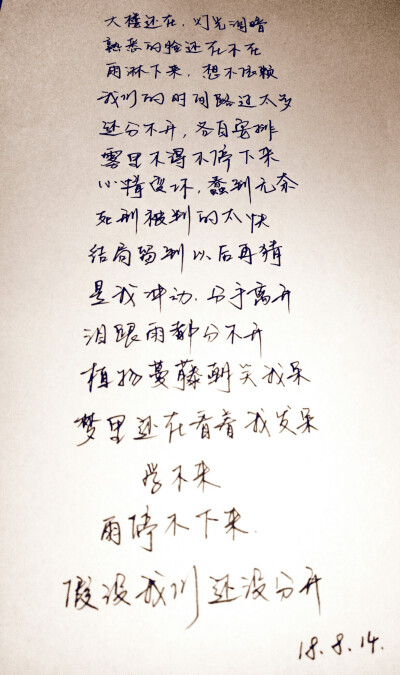 大楼还在，灯光润暗
熟悉的脸还在不在
雨淋下来，想不起赖
我们的时间路过太多
还分不开，各自安排
雾里不得不停下来
心情变坏，蠢到无奈
死刑被判的太快
结局留到以后再猜
是我冲动，分手离开
泪跟雨都分不开
植物蔓藤朝笑我呆
梦里还在看着我发呆
学不来
雨停不下来.
假设我们还没分开
18.8.14.